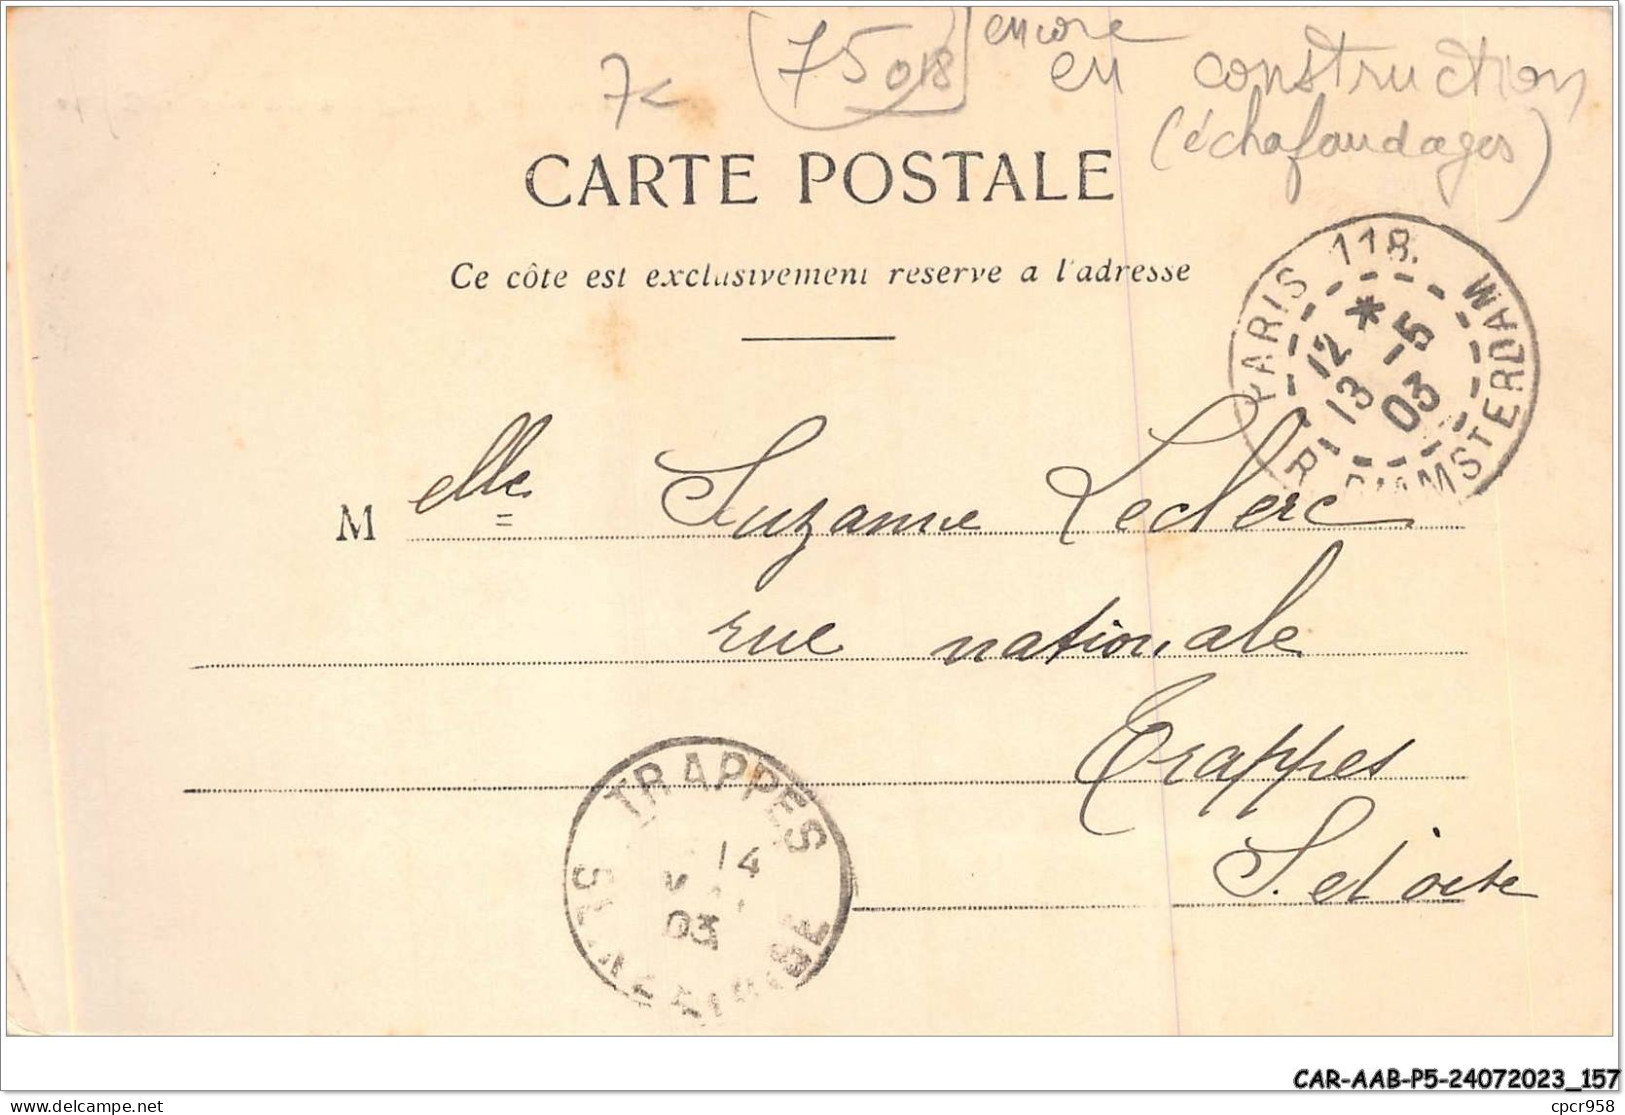 encore
7c (75018) en construction
(échafaudages)
CARTE POSTALE
Ce côte est exclusivement reserve a l'adresse
PARIS 118. R. D'AMSTERDAM
12 *
13 -5
03
Melle Suzanne Leclerc
rue nationale
Trappes
S. et oise
TRAPPES
14
03
SEINE-ET-OISE
CAR-AAB-P5-24072023_157
cpcr958